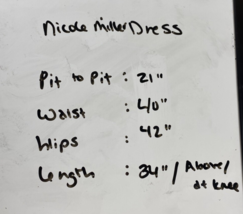 Nicole Miller Dress
Pit to Pit : 21"
Waist : 40"
hips : 42"
Length : 34" / Above / at knee